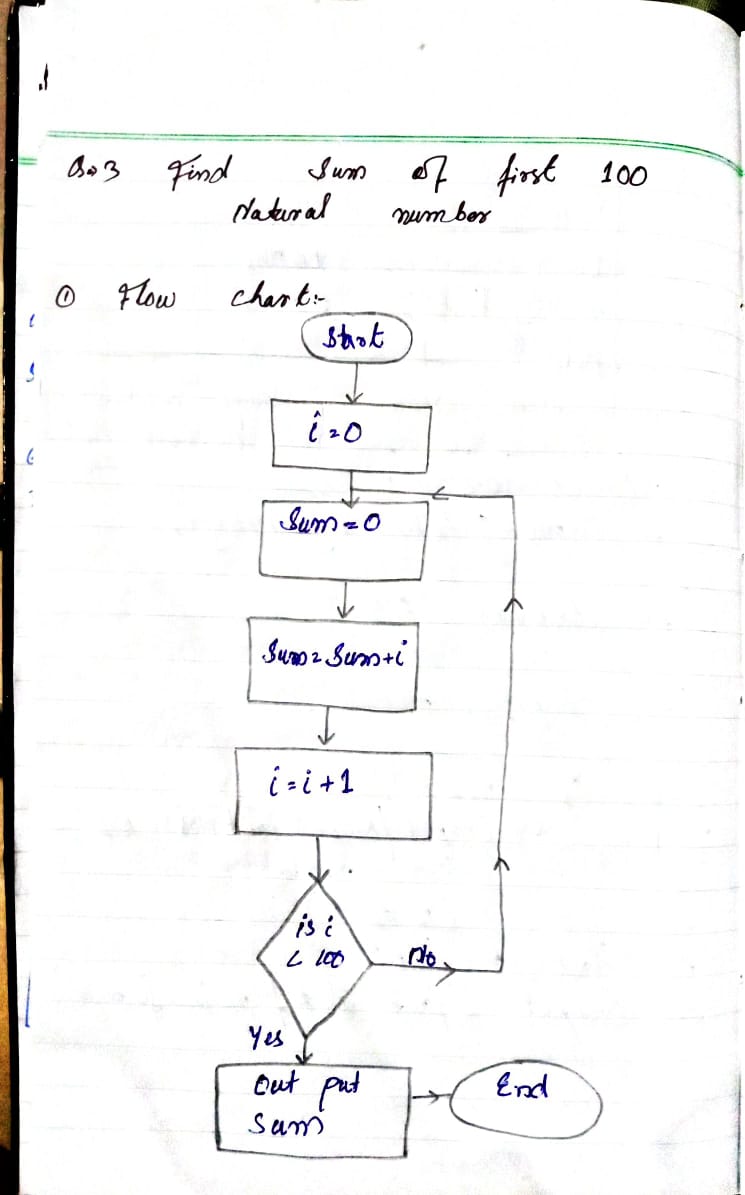 Q.3 Find Sum of first 100
Natural number
① Flow chart:-
Start
i=0
Sum=0
Sum=Sum+i
i=i+1
is i
< 100
No
Yes
Out put
Sum
End